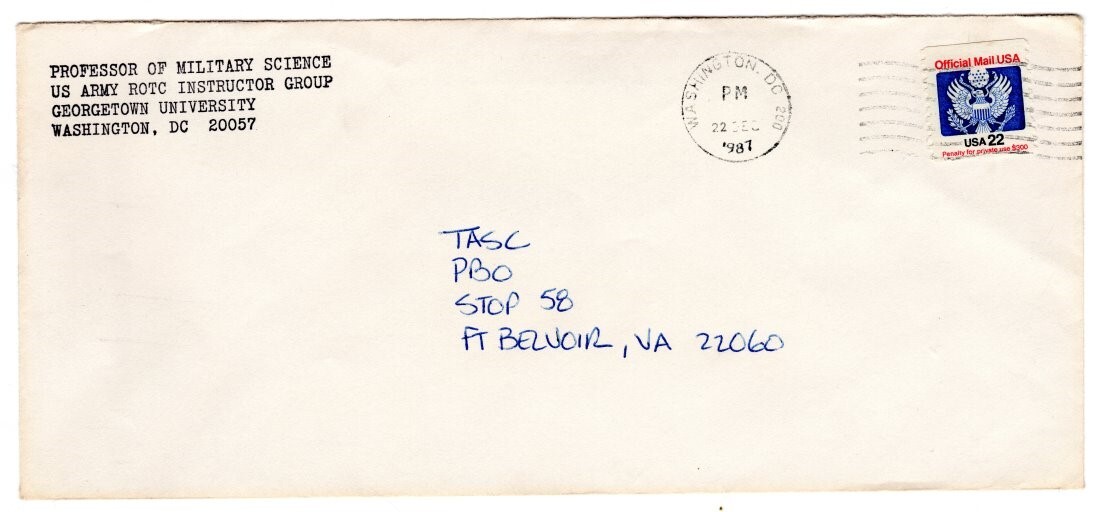 PROFESSOR OF MILITARY SCIENCE
US ARMY ROTC INSTRUCTOR GROUP
GEORGETOWN UNIVERSITY
WASHINGTON, DC 20057
WASHINGTON, DC 200
PM
22 DEC
1987
Official Mail USA
USA 22
Penalty for private use $300
TASC
PBO
STOP 58
FT BELVOIR, VA 22060